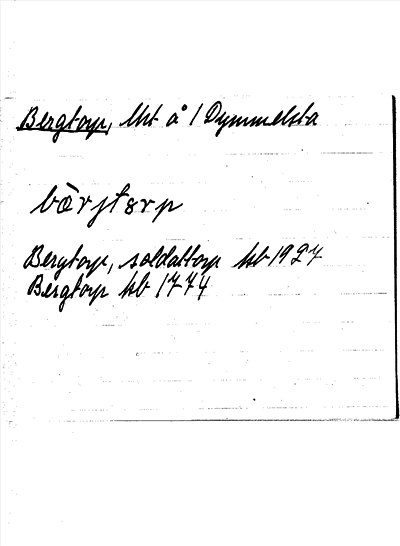 Bergtorp, lht å 1 Dymmelsta
bàrjtørp
Bergtorp, soldattorp hb 1927
Bergtorp hb 1774